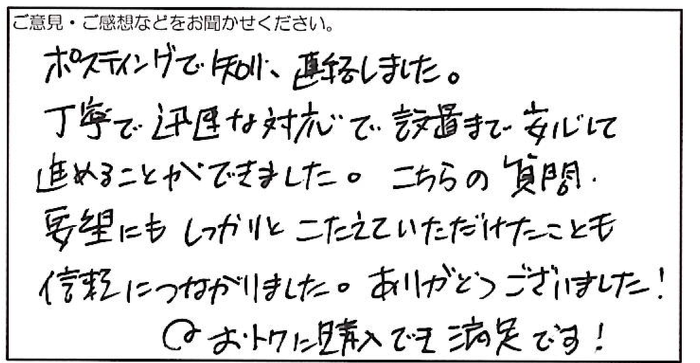 ご意見・ご感想などをお聞かせください。
ポスティングで知り、連絡しました。
丁寧で迅速な対応で設置まで安心して
進めることができました。こちらの質問・
要望にもしっかりとこたえていただけたことも
信頼につながりました。ありがとうございました!
おトクに購入でき満足です!